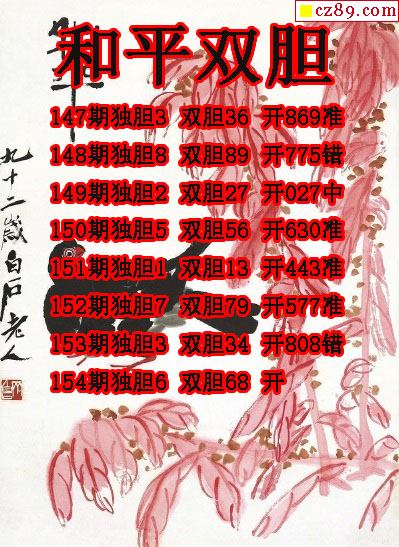 cz89.com
和平双胆
147期独胆3 双胆36 开869准
148期独胆8 双胆89 开775错
149期独胆2 双胆27 开027中
150期独胆5 双胆56 开630准
151期独胆1 双胆13 开443准
152期独胆7 双胆79 开577准
153期独胆3 双胆34 开808错
154期独胆6 双胆68 开
九十二岁白石老人